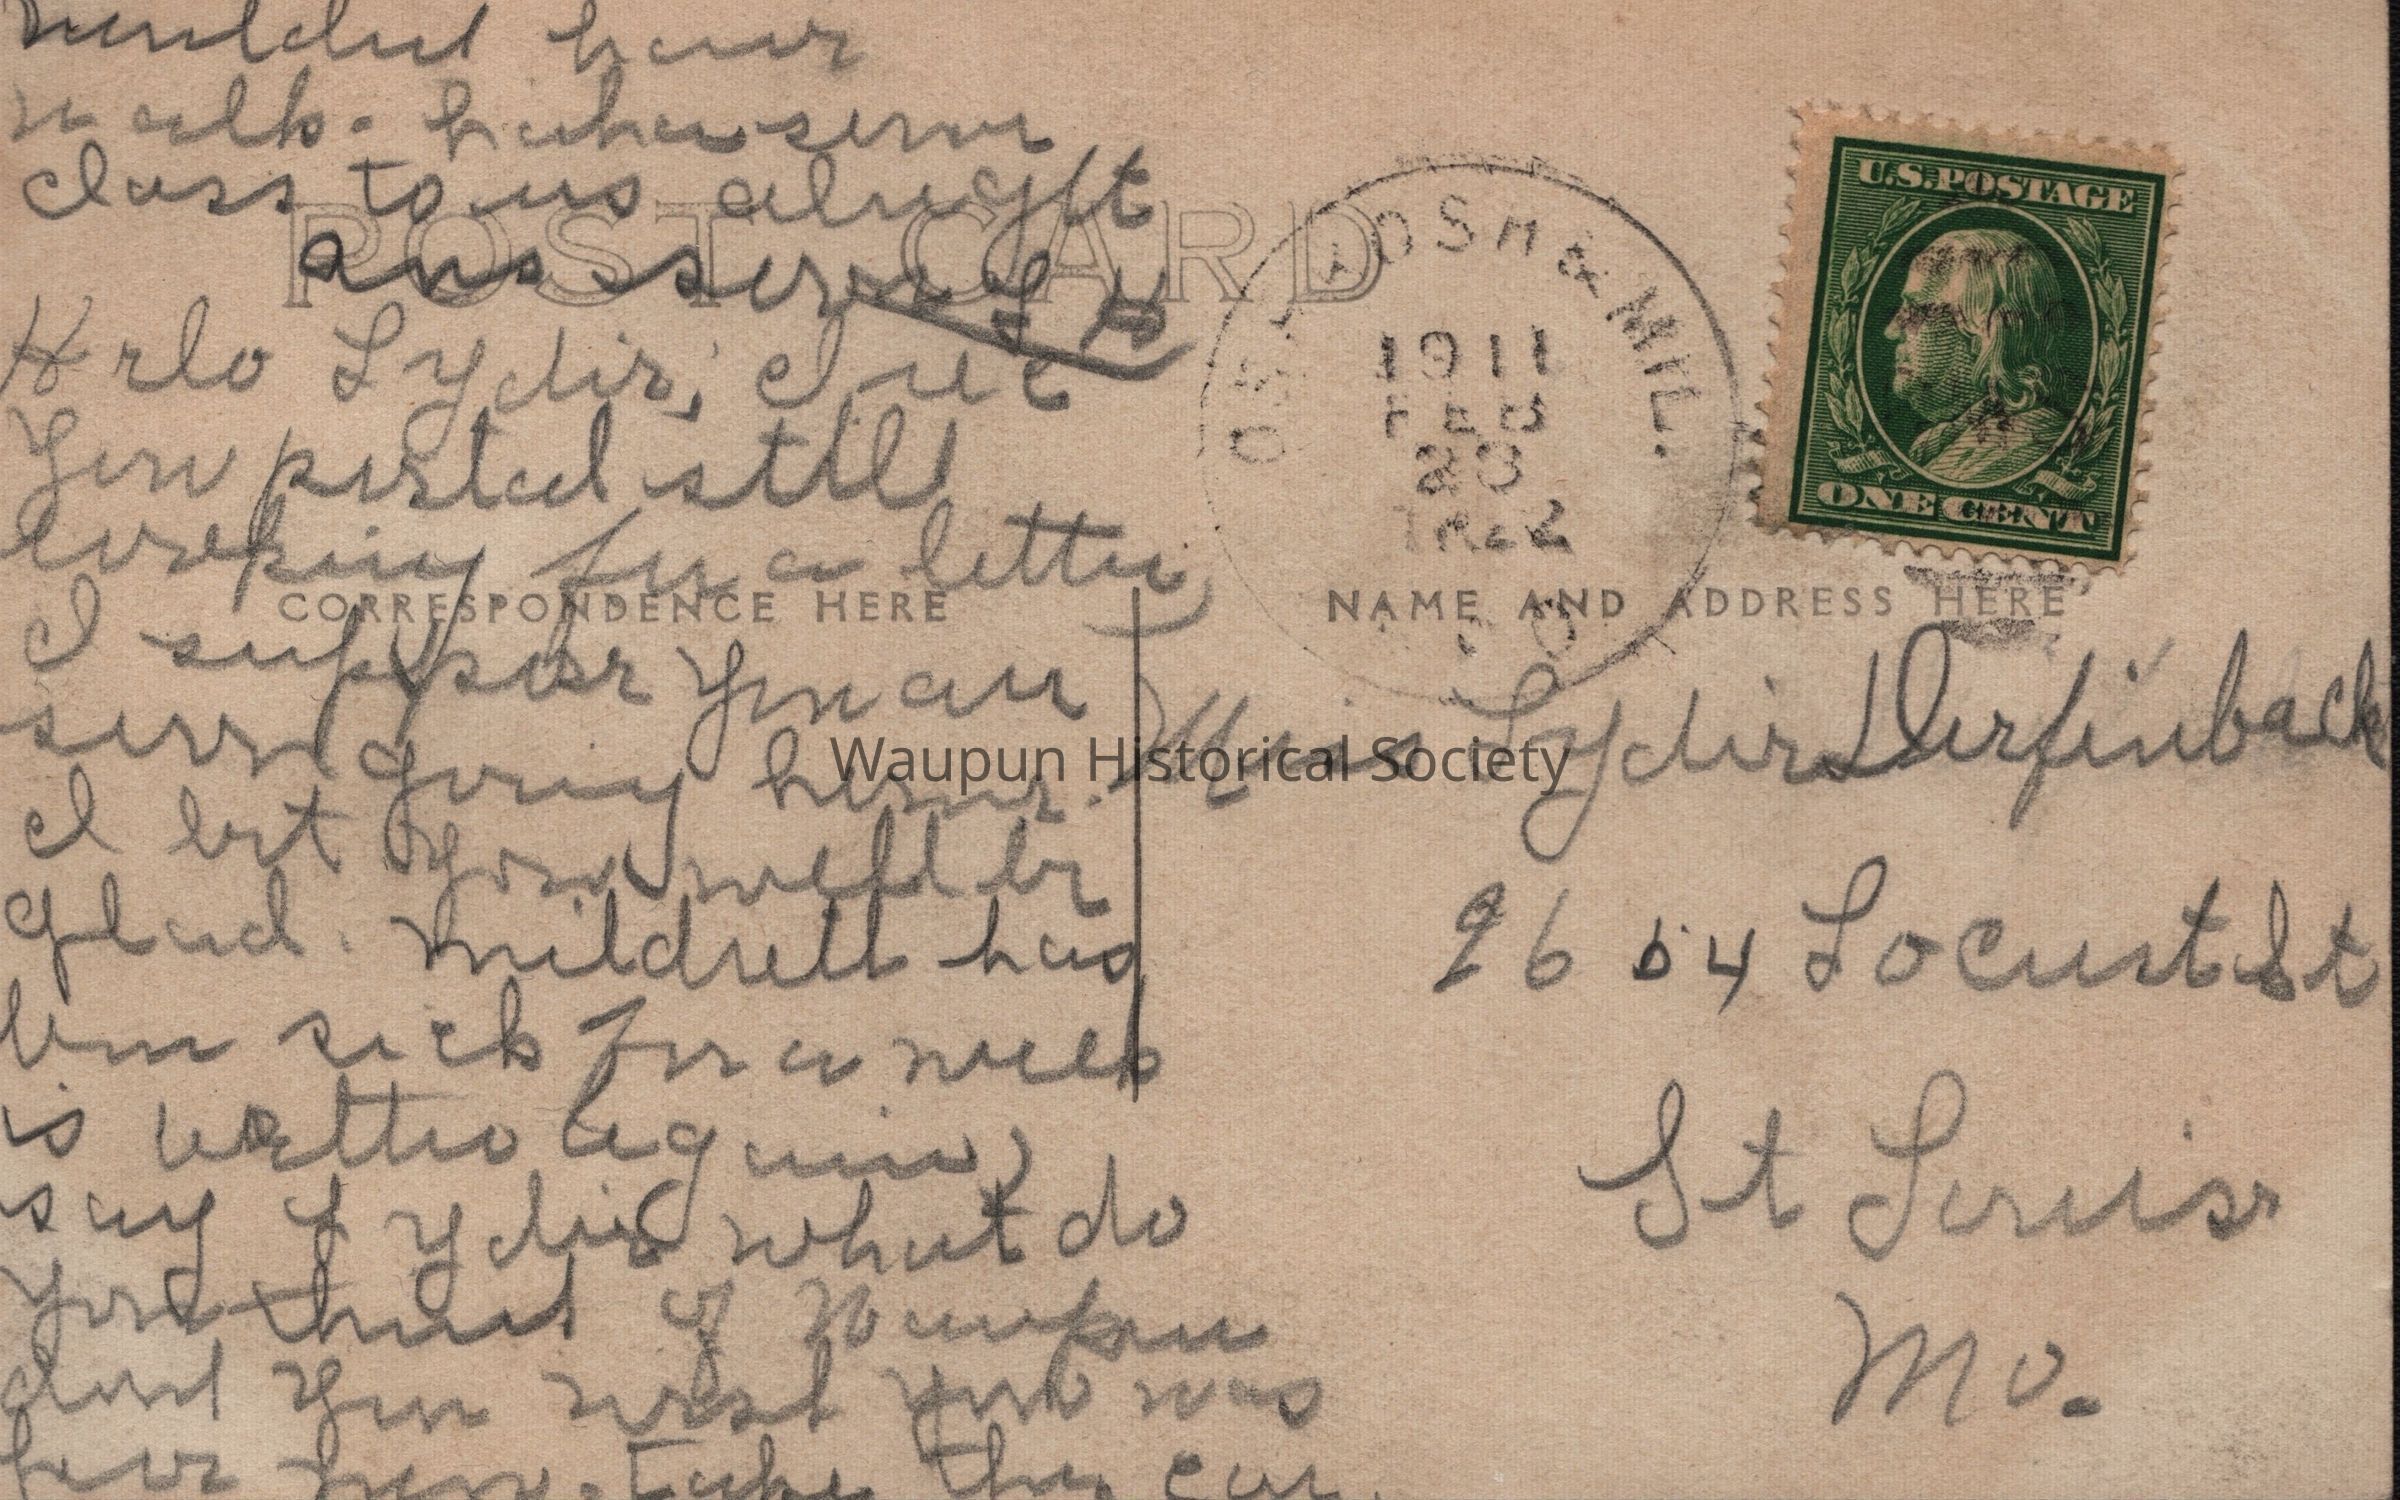 have
walk. 
class to us alright
ans soon
U.S. POSTAGE
ONE CENT
POST CARD
OSHKOSH & MIL.
1911
FEB
23
TR. 2
Helo Lydia, I rec
your postal still
looking for a letter,
CORRESPONDENCE HERE
NAME AND ADDRESS HERE
I suppose you are
soon going home.
I bet you will be
glad. Mildrett has
ben sick for a week
is better again,
say Lydia what do
you think of Waupun
dont you wish you was
here now. Take the car
Miss Lydia Derfenback
2604 Locust St
St Louis
Mo.
Waupun Historical Society